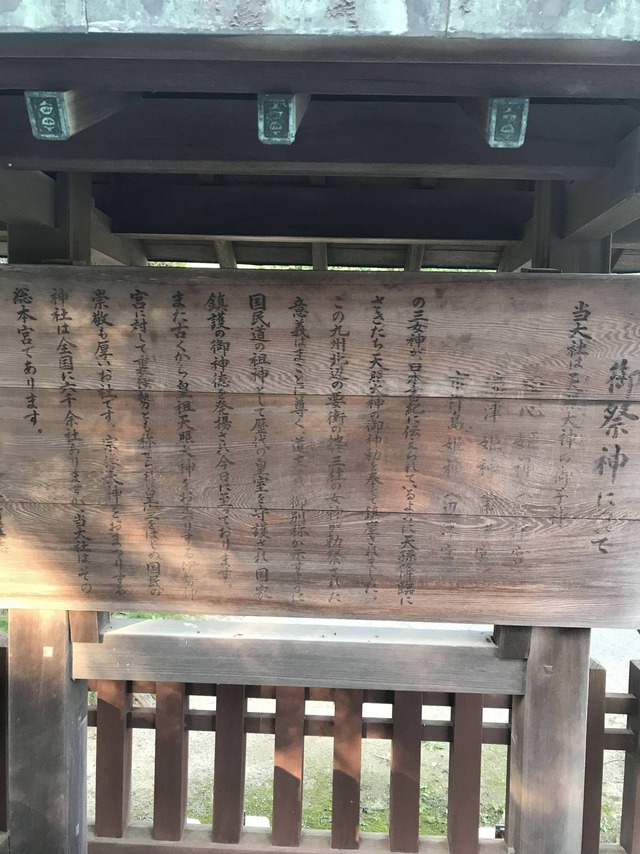 御祭神について
当大社は天照大神の御子神
心姫神
津姫神
市杵島姫神 辺
の三女神が日本書紀に伝えられているように天孫降臨に
さきだち天照大神の御神勅を奉じて鎮斎されました
この九州北辺の要衝の地に三柱の女神が勅祭された
意義はまことに尊く、道主貴の御別称が示すように
国民道の祖神として歴代の皇室を守護され国家
鎮護の御神徳を発揚され今日に至っております。
また古くから皇祖天照大神をおまつりする伊勢神
宮に対して裏伊勢とも称せられ皇室をはじめ国民の
崇敬も厚いお社です。宗像大神をおまつりする
神社は全国に六千余社ありますが、当大社はその
総本宮であります。